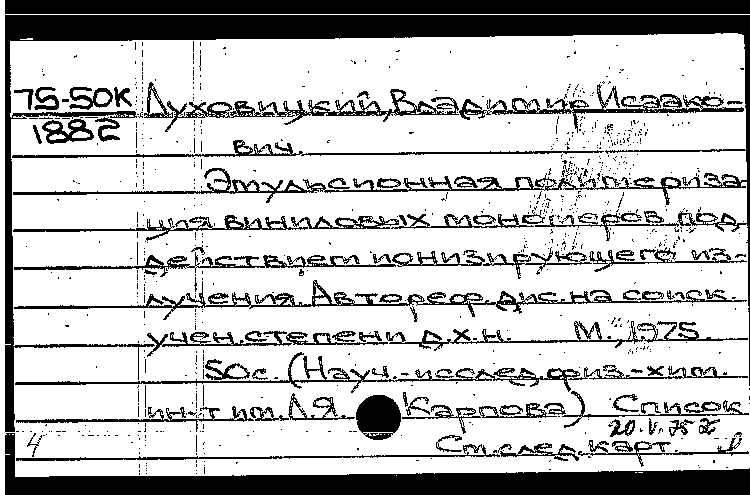 75-50К Луховицкий, Владимир Исаако-
1882
вич.
Эмульсионная полимериза-
ция виниловых мономеров под
действием ионизирующего из-
лучения. Автореф. дис. на соиск.
учен. степени д.х.н. М., 1975.
50с. (Науч.-исслед. физ.-хим.
ин-т им. Л.Я. Карпова). Список
20.V.75
4 См. след. карт.